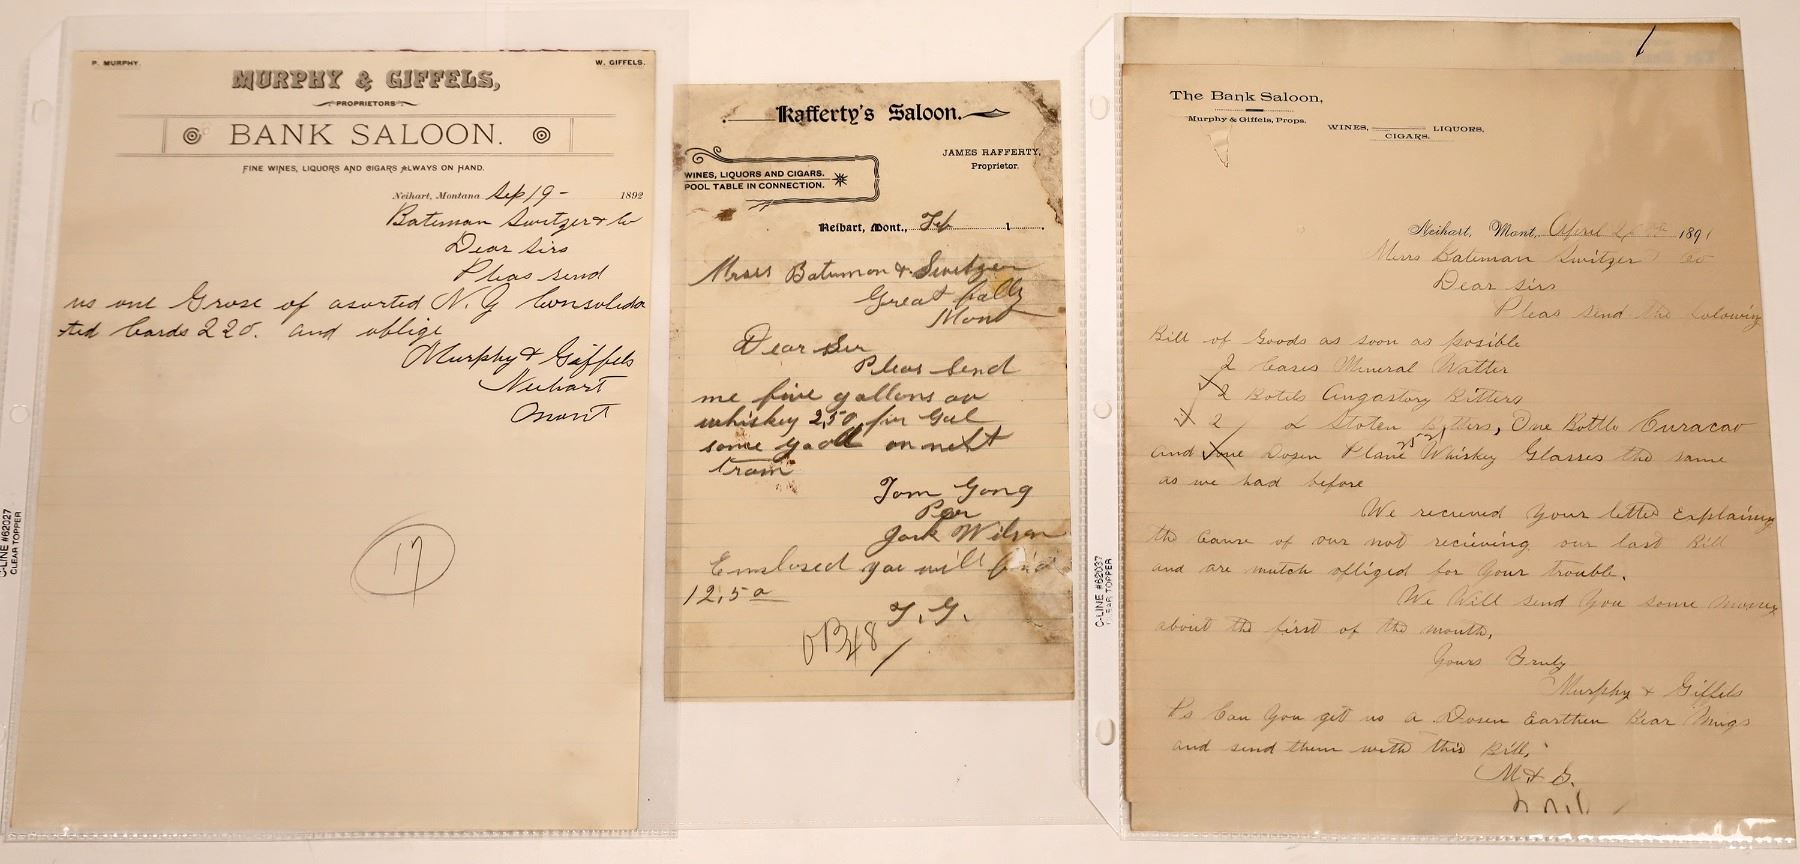 P. MURPHY.
W. GIFFELS.
MURPHY & GIFFELS,
PROPRIETORS
BANK SALOON.
FINE WINES, LIQUORS AND CIGARS ALWAYS ON HAND.
Neihart, Montana Sep 19 - 1892
Bateman Switzer & Co
Dear Sirs
Pleas send
us one Grose of asorted N. G Consolida
ted Cards 220. and oblige
Murphy & Giffels
Neihart
Mont
17
C-LINE #62027
CLEAR TOPPER
Rafferty's Saloon.
JAMES RAFFERTY,
Proprietor.
WINES, LIQUORS AND CIGARS.
POOL TABLE IN CONNECTION.
Neihart, Mont., Feb 1
Mess Batemon & Switzer
Great falls
Mont
Dear Sir
Pleas send
me five gallons av
whiskey 2,50 per Gal
some good on next
train
Tom Gong
Per
Jack Wilson
Emclosed you will find
12,50
T. G.
OB48
1
The Bank Saloon,
Murphy & Giffels, Props.
WINES, LIQUORS,
CIGARS.
Neihart, Mont, April 1891
Merrs Bateman Switzer Co
Dear Sirs
Pleas send the folowing
Bill of Goods as soon as posible
2 Cases Mineral Watter
2 Botels Angastory Bitters
2 Stoten Bitters, One Bottle Curacao
and one Dosen Plane Whiskey Glasses the same
as we had before
We recieved your letter Explaining
the Cause of our not recieving our last Bill
and are mutch obliged for your trouble.
We Will send you some money
about the first of the month.
Yours Truly
Murphy & Giffels
Ps Can you get us a Dosen Earthen Bear Mugs
and send them with this Bill,
M & G.
C-LINE #62037
CLEAR TOPPER